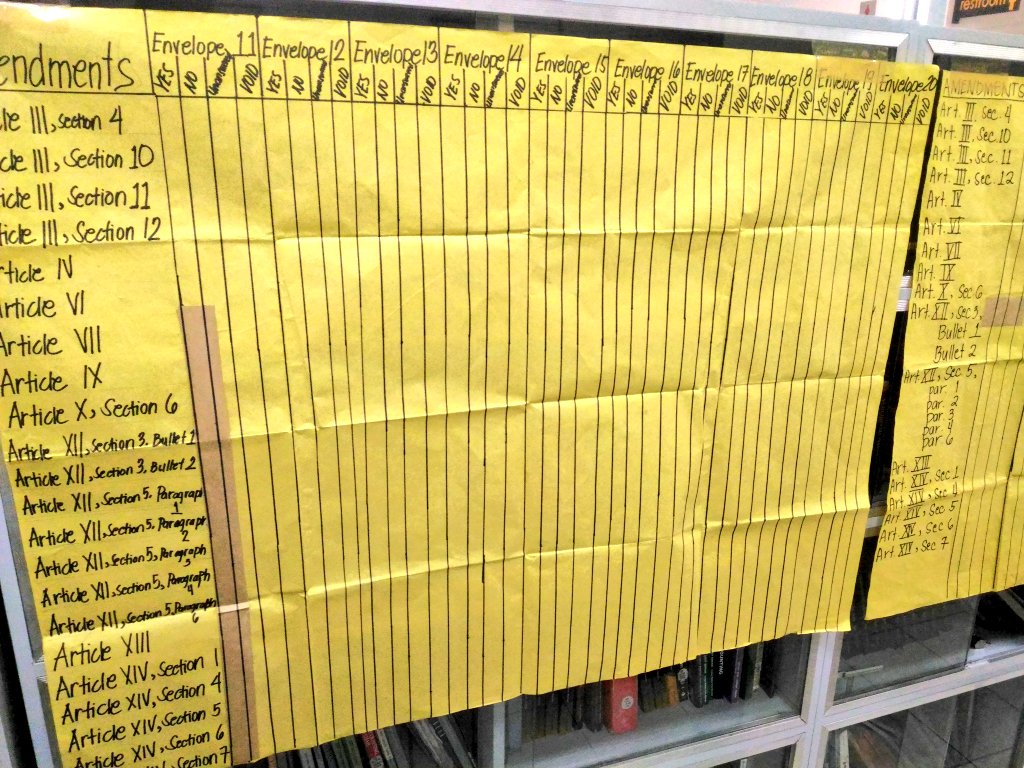 restroom
endments
Envelope 11 Envelope 12 Envelope 13 Envelope 14 Envelope 15 Envelope 16 Envelope 17 Envelope 18 Envelope 19 Envelope 20
YES NO VOID YES NO VOID YES NO VOID YES NO VOID YES NO VOID YES NO VOID YES NO VOID YES NO VOID YES NO VOID YES NO VOID
cle III, Section 4
icle III, Section 10
ticle III, Section 11
ticle III, Section 12
rticle IV
Article VI
Article VII
Article IX
Article X, Section 6
Article XII, Section 3. Bullet 1
Article XII, Section 3. Bullet 2
Article XII, Section 5. Paragraph 1
Article XII, Section 5. Paragraph 2
Article XII, Section 5, Paragraph 3
Article XII, Section 5, Paragraph 4
Article XII, Section 5. Paragraph 6
Article XIII
Article XIV, Section 1
Article XIV, Section 4
Article XIV, Section 5
Article XIV, Section 6
Section 7
AMENDMENTS
Art. III, Sec. 4
Art. III, Sec. 10
Art. III, Sec. 11
Art. III, Sec. 12
Art. IV
Art. VI
Art. VII
Art. IX
Art. X, Sec 6
Art. XII, Sec 3,
Bullet 1
Bullet 2
Art XII, Sec 5,
par. 1
par. 2
par. 3
par. 4
par. 6
Art. XIII
Art. XIV, Sec 1
Art. XIV, Sec 4
Art. XIV, Sec 5
Art. XIV, Sec 6
Art. XIV, Sec 7